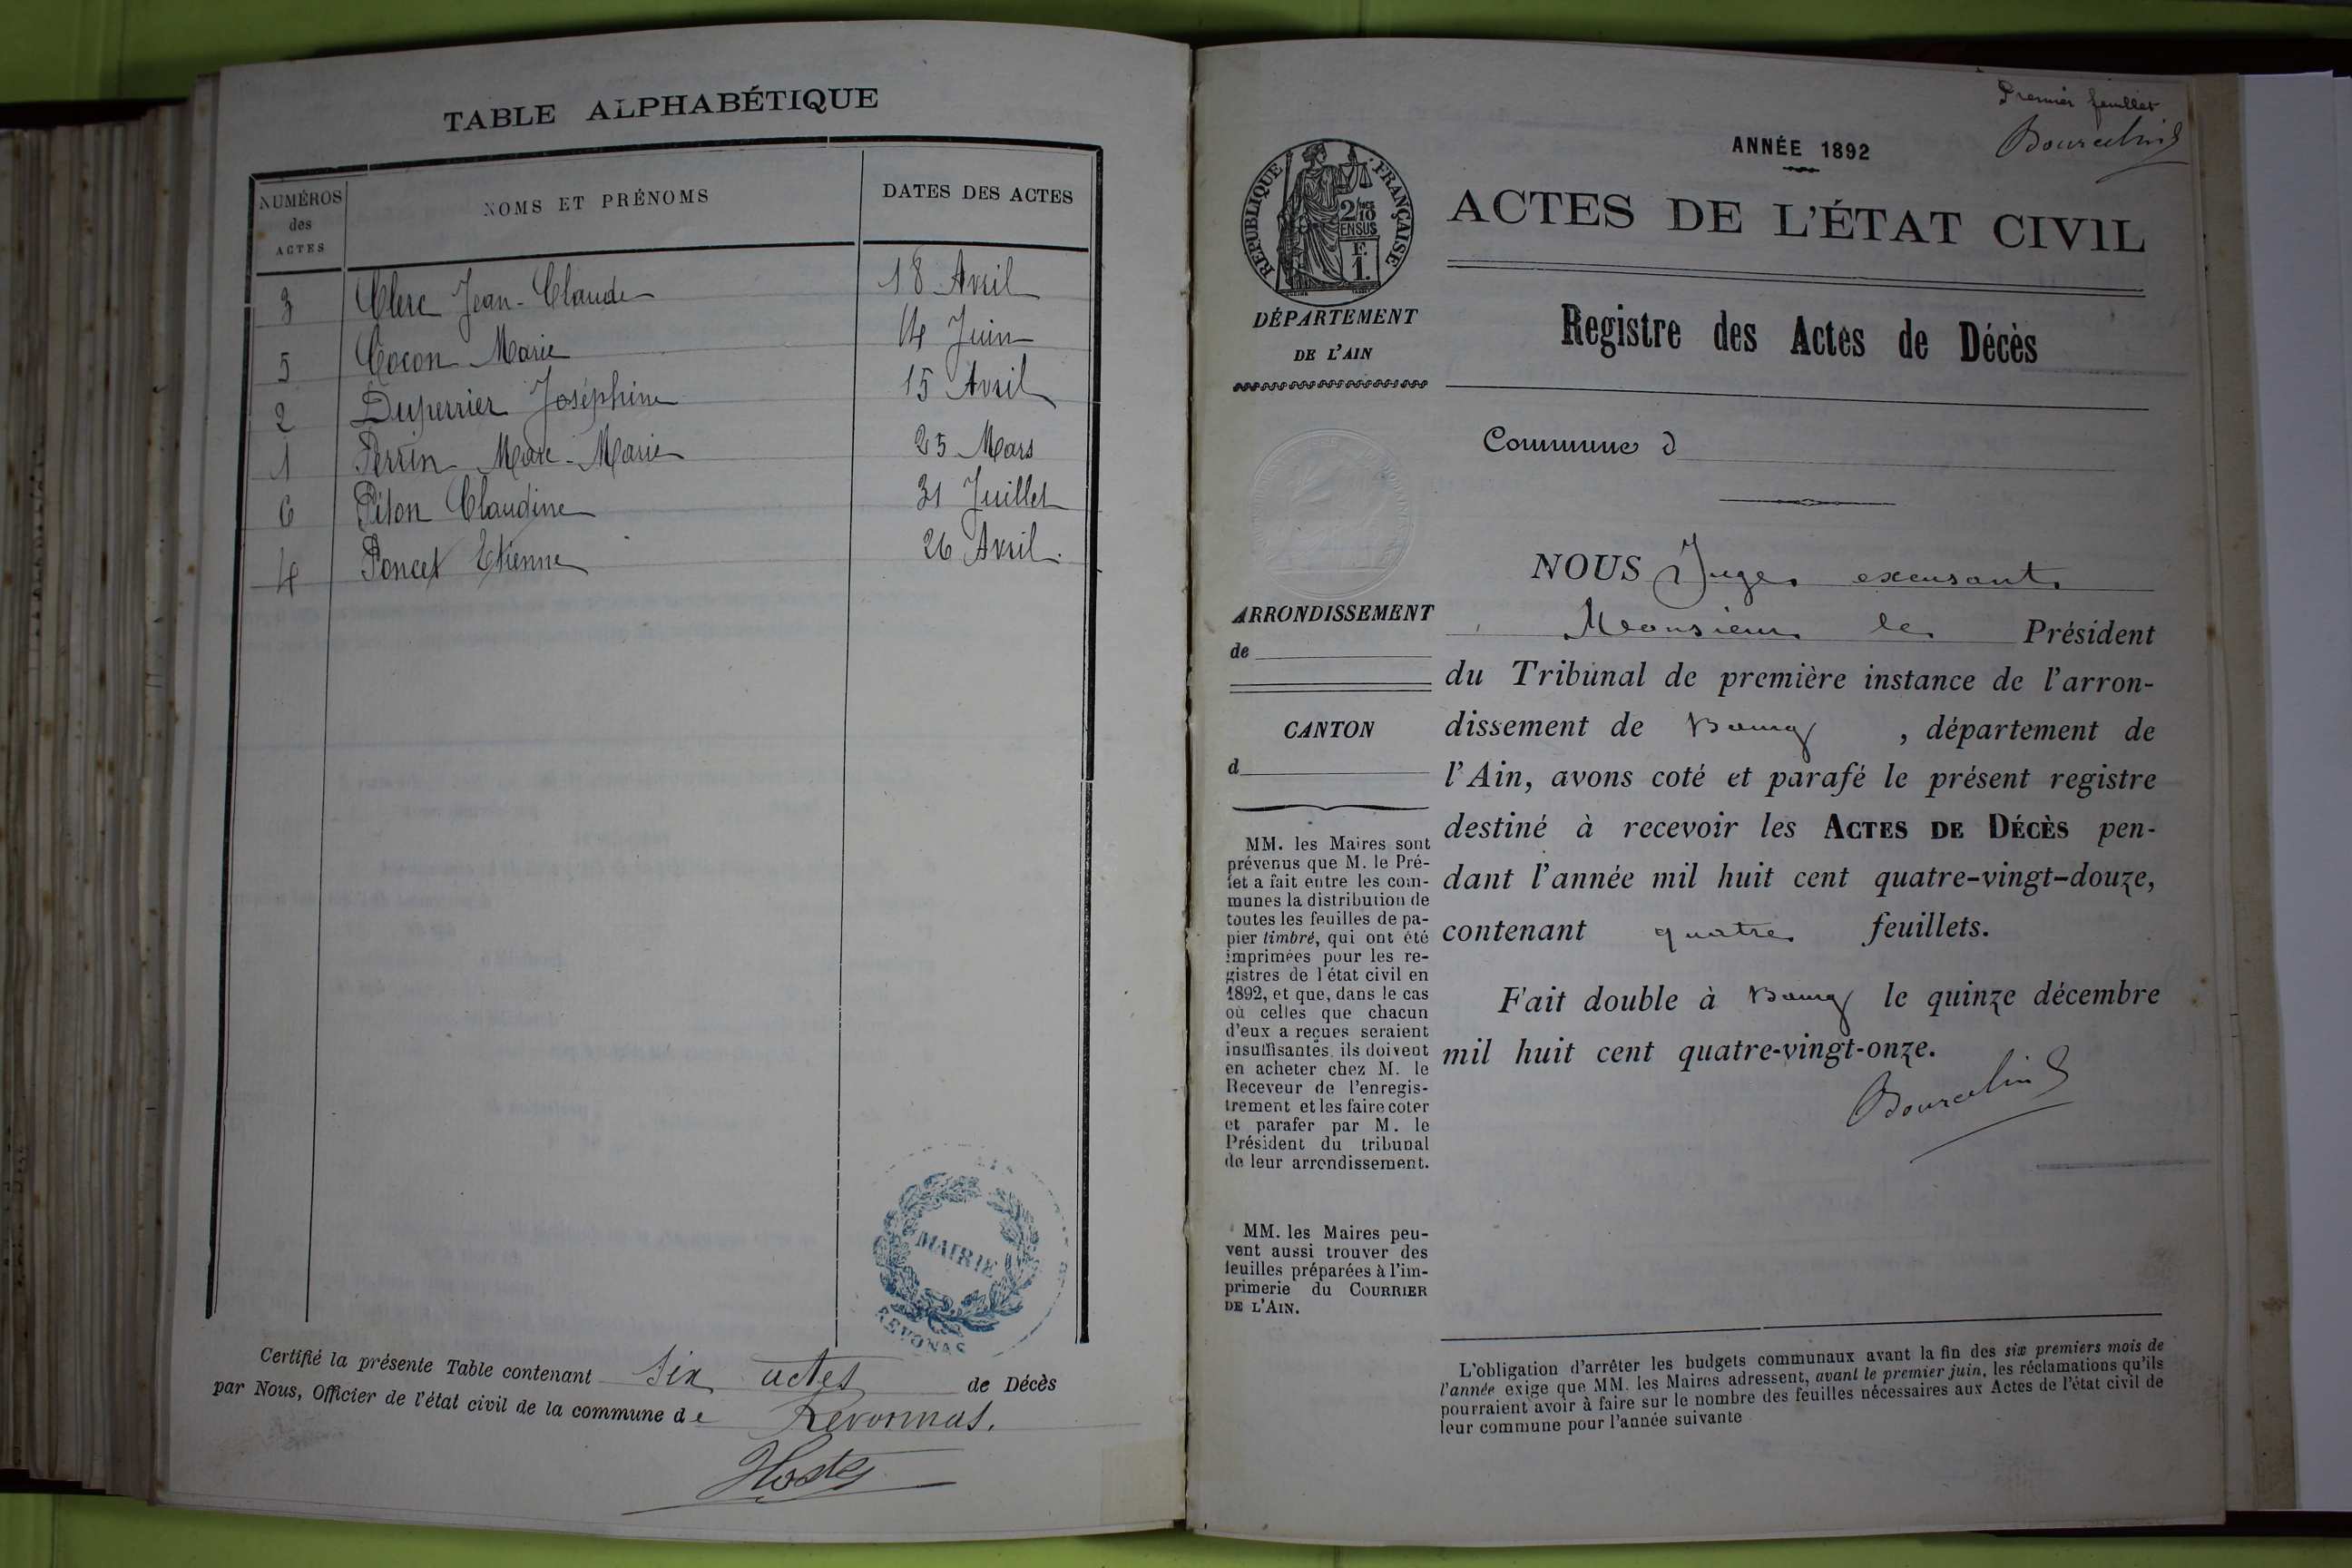 TABLE ALPHABÉTIQUE
NUMÉROS
des
ACTES
NOMS ET PRÉNOMS
DATES DES ACTES
3 Clerc Jean-Claude 18 Avril
5 Cocon Marie 14 Juin
2 Duperrier Joséphine 15 Avril
1 Perrin Marc-Marie 25 Mars
6 Piton Claudine 31 Juillet
4 Poncet Etienne 26 Avril.
MAIRIE
REVONAS
Certifié la présente Table contenant six actes de Décès
par Nous, Officier de l'état civil de la commune de Revonnas.
Premier feuillet
ANNÉE 1892
RÉPUBLIQUE FRANÇAISE
2/10
EN SUS
F.
1.
ACTES DE L'ÉTAT CIVIL
DÉPARTEMENT
DE L'AIN
Registre des Actes de Décès
Commune d
NOUS Juge excusant
Monsieur le Président
du Tribunal de première instance de l'arron-
dissement de Bourg, département de
l'Ain, avons coté et parafé le présent registre
destiné à recevoir les ACTES DE DÉCÈS pen-
dant l'année mil huit cent quatre-vingt-douze,
contenant quatre feuillets.
Fait double à Bourg le quinze décembre
mil huit cent quatre-vingt-onze.
ARRONDISSEMENT
de
CANTON
d
MM. les Maires sont
prévenus que M. le Pré-
fet a fait entre les com-
munes la distribution de
toutes les feuilles de pa-
pier timbré, qui ont été
imprimées pour les re-
gistres de l'état civil en
1892, et que, dans le cas
où celles que chacun
d'eux a reçues seraient
insuffisantes, ils doivent
en acheter chez M. le
Receveur de l'enregis-
trement et les faire coter
et parafer par M. le
Président du tribunal
de leur arrondissement.
MM. les Maires peu-
vent aussi trouver des
feuilles préparées à l'im-
primerie du COURRIER
DE L'AIN.
L'obligation d'arrêter les budgets communaux avant la fin des six premiers mois de
l'année exige que MM. les Maires adressent, avant le premier juin, les réclamations qu'ils
pourraient avoir à faire sur le nombre des feuilles nécessaires aux Actes de l'état civil de
leur commune pour l'année suivante